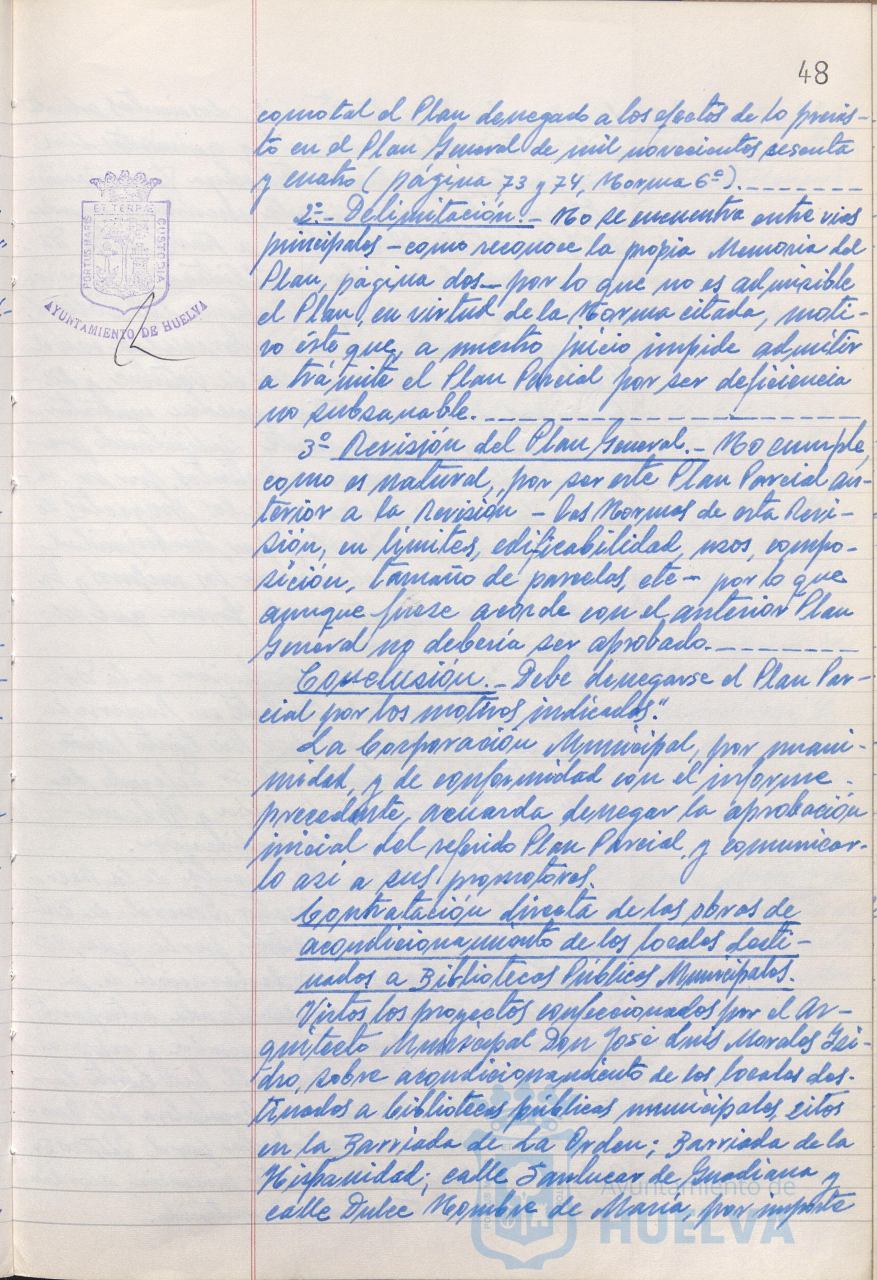 48
como tal el Plan denegado a los efectos de lo previs-
to en el Plan General de mil novecientos sesenta
y cuatro ( página 73 y 74, Norma 6ª).
2º.- Delimitación.- No se encuentra entre vias
principales - como reconoce la propia Memoria del
Plan, página dos- por lo que no es admisible
el Plan, en virtud de la Norma citada, moti-
vo éste que, a nuestro juicio impide admitir
a trámite el Plan Parcial por ser deficiencia
no subsanable.
3º- Revisión del Plan General.- No cumple,
como es natural, por ser este Plan Parcial an-
terior a la Revisión - las Normas de esta Revi-
sión, en límites, edificabilidad, usos, compo-
sición, tamaño de parcelas, etc- por lo que
aunque fuese acorde con el anterior Plan
General no debería ser aprobado.
Conclusión.- Debe denegarse el Plan Par-
cial por los motivos indicados."
La Corporación Municipal, por unani-
midad, y de conformidad con el informe
precedente, acuerda denegar la aprobación
inicial del referido Plan Parcial, y comunicar-
lo así a sus promotores.
Contratación directa de las obras de
acondicionamiento de los locales desti-
nados a Bibliotecas Públicas Municipales.
Vistos los proyectos confeccionados por el Ar-
quitecto Municipal Don José Luis Morales Isi-
dro, sobre acondicionamiento de los locales des-
tinados a bibliotecas públicas municipales, sitos
en la Barriada de La Orden; Barriada de la
Hispanidad; calle Sanlucar de Guadiana y
calle Dulce Nombre de María, por importe
PORTUS MARIS
ET TERRAE
CUSTODIA
AYUNTAMIENTO DE HUELVA
Ayuntamiento de
HUELVA